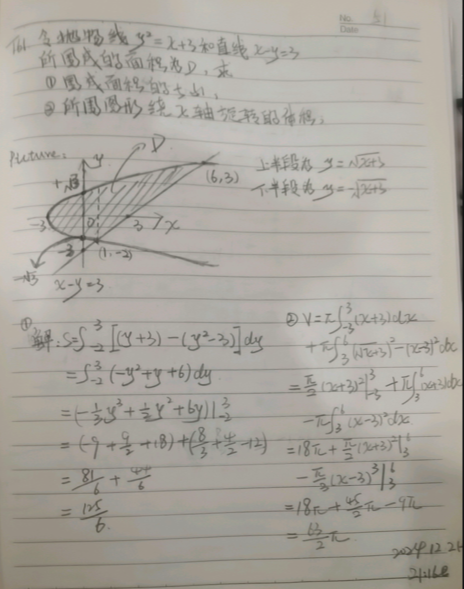 No. 51
Date
T61 令抛物线 y²=x+3和直线x-y=3
所围成的面积为D,求
①围成面积的大小,
②所围图形绕x轴旋转的体积.
Picture:
y
D
+√3
(6,3)
-3
0
3
x
-3
(1,-2)
-√3
x-y=3
上半段为 y=√x+3
下半段为 y=-√x+3
①
解:S=∫₋₂³[(y+3)-(y²-3)]dy
=∫₋₂³(-y²+y+6)dy
=(-⅓y³+½y²+6y)|₋₂³
=(-9+9/2+18)+(8/3+4/2+12)
=81/6+44/6
=125/6.
②V=π∫₋₃³(x+3)dx
+π∫₃⁶(√x+3)²-(x-3)²dx
=π/2(x+3)²|₋₃³+π∫₃⁶(x+3)dx
-π∫₃⁶(x-3)²dx
=18π+π/2(x+3)²|₃⁶
-π/3(x-3)³|₃⁶
=18π+45/2π-9π
=63/2π
2024.12.21
21:16